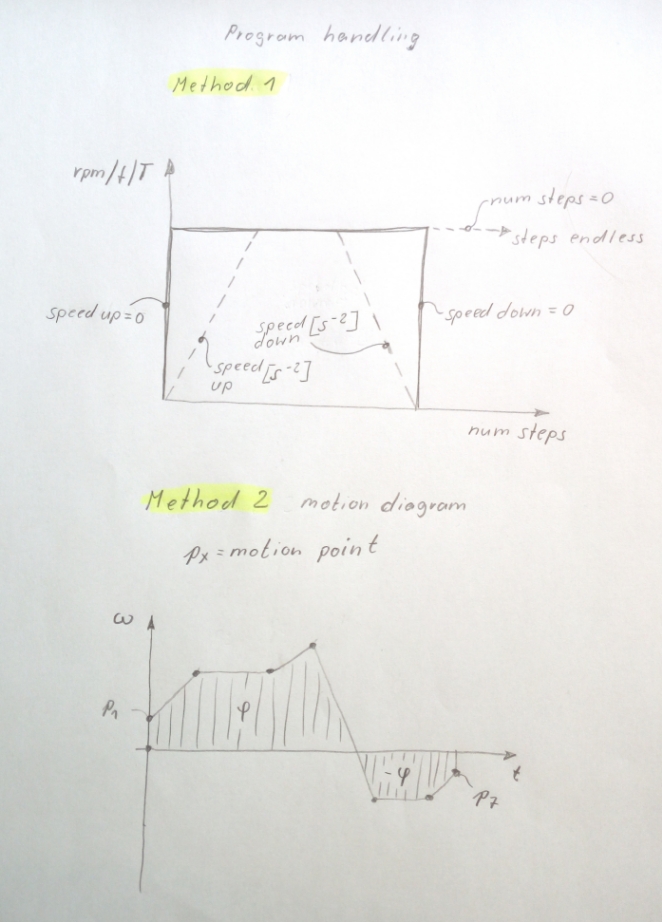 Program handling
Method 1
rpm/f/T
num steps=0
steps endless
speed up=0
speed [s⁻²]
down
speed down = 0
speed [s⁻²]
up
num steps
Method 2 motion diagram
px = motion point
ω
p1
φ
-φ
t
p7